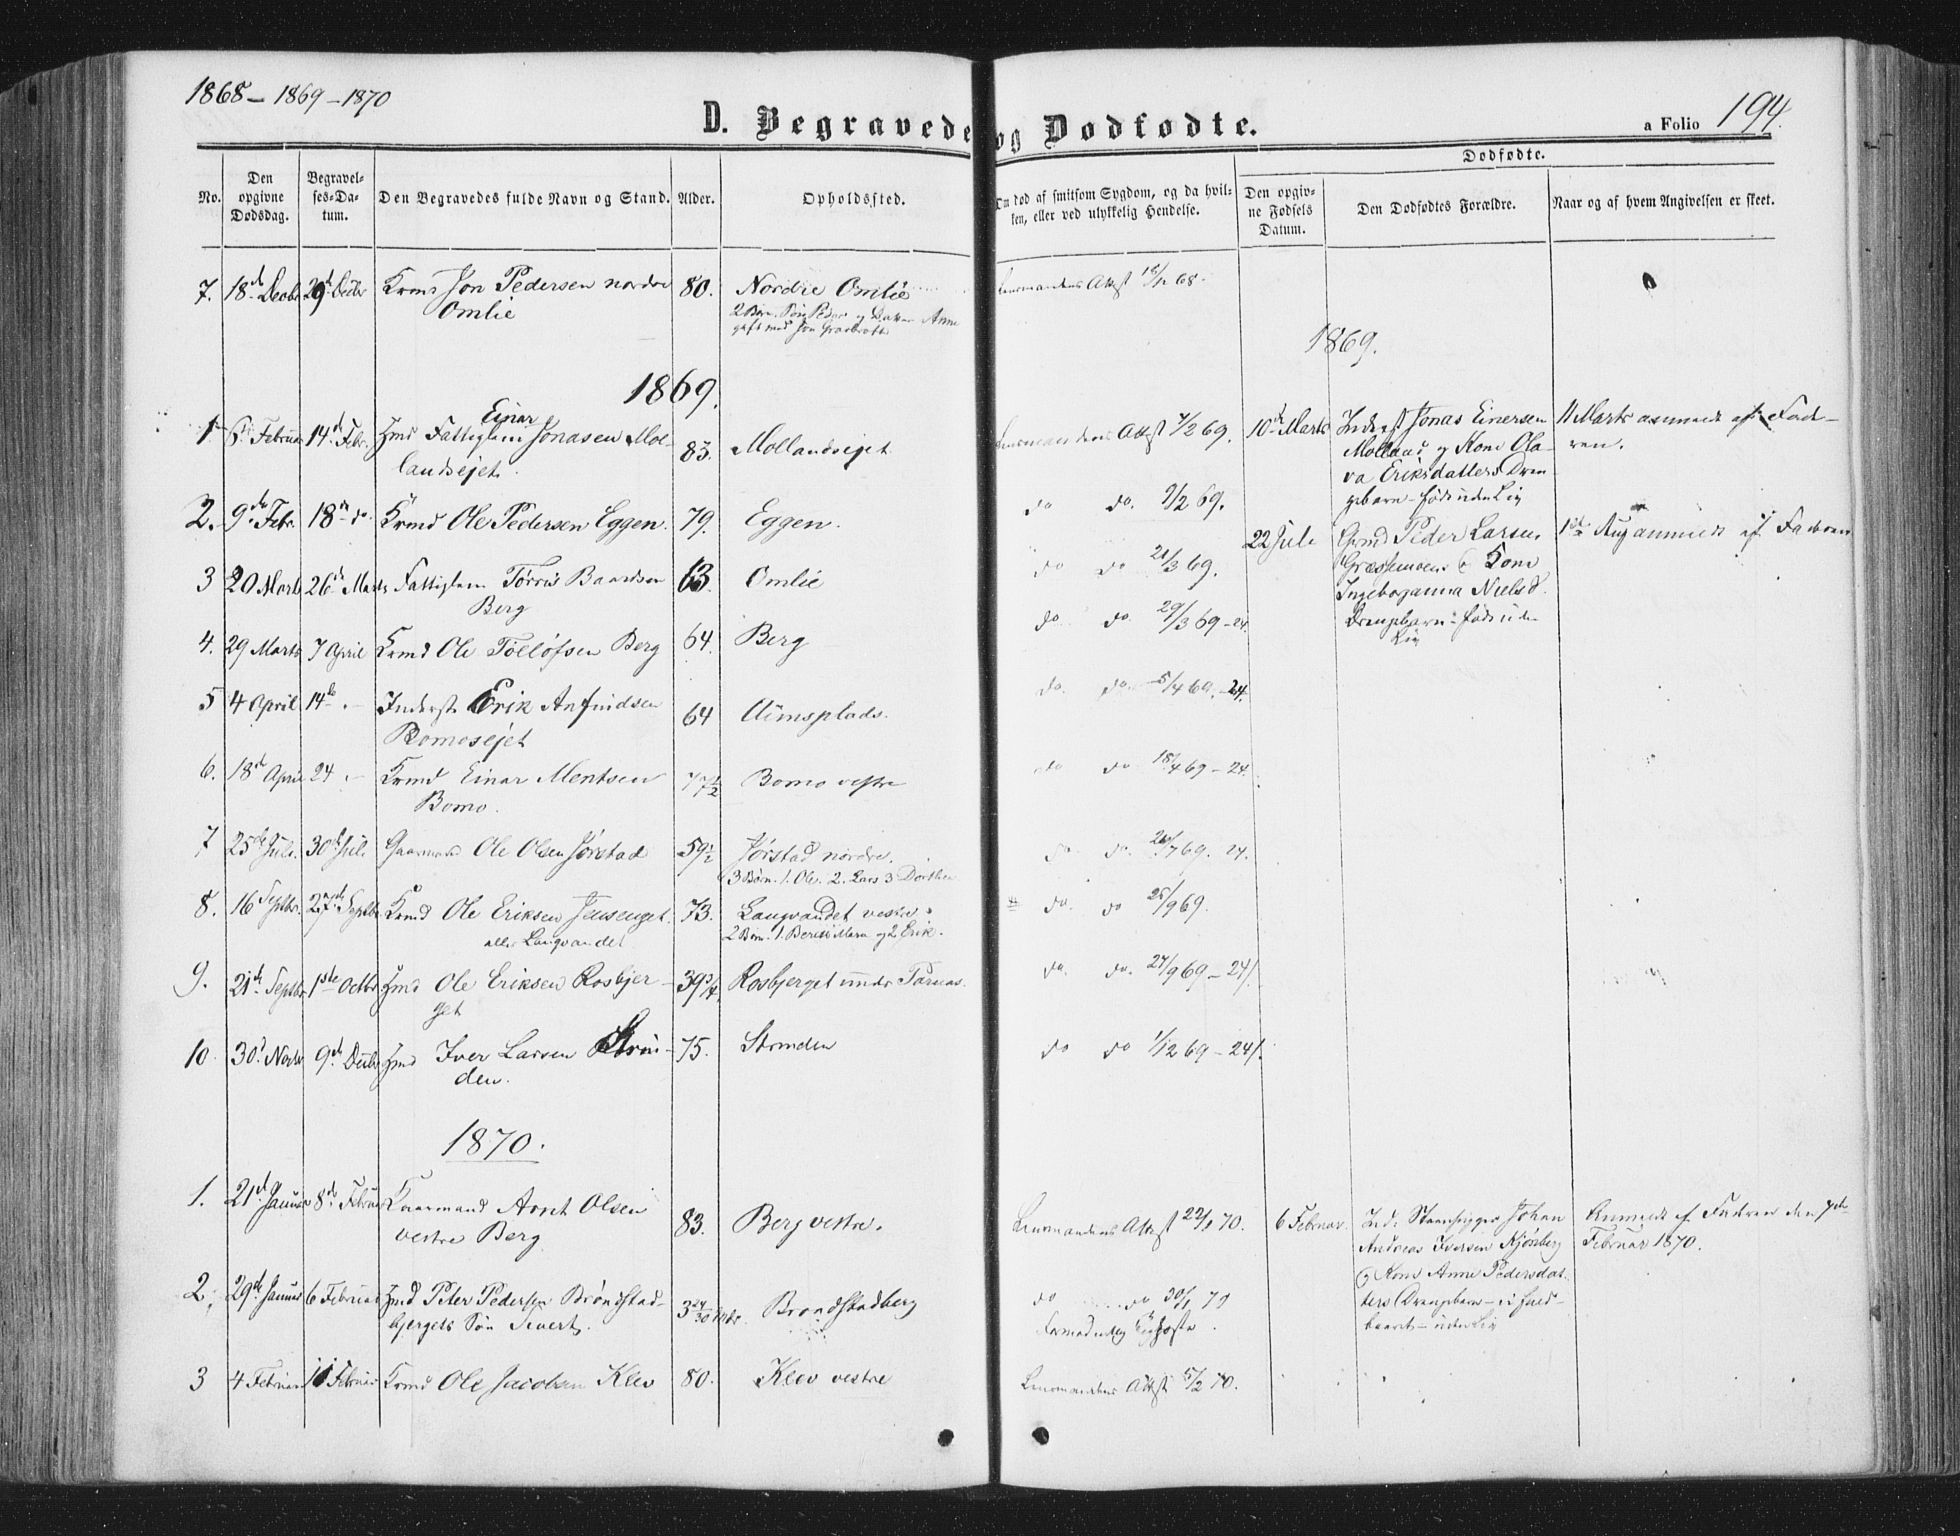 1868 – 1869 – 1870
D. Begravede og Dødfødte.
a Folio 194.
No.
Den opgivne Dødsdag.
Begravelses-Datum.
Den Begravedes fulde Navn og Stand.
Alder.
Opholdssted.
Om død af smitsom Sygdom, og da hvilken, eller ved ulykkelig Hendelse.
Dødfødte.
Den opgivne Fødsels Datum.
Den Dødfødtes Forældre.
Naar og af hvem Angivelsen er skeet.
7. 18d Decbr 29d Decbr Krmd Jon Pedersen nordre 80. Nordre Omlie Lensmandens Attest 18/12 68.
Omlie
2 Børn. Peder og Datter Anne
gift med Jon
1869.
1869.
1 6 Februar 14d Febr. Hmd Fattiglem Einar Jonasen Mol- 83. Mollandsejet Lensmandens Attest 7/2 69.
landsejet.
10d Marts Inderst Jonas Einersen
Molland og Kone Ola-
va Eriksdatters Dren
gebarn – født uden Liv
11 Marts anmeldt af Fade-
ren.
2. 9de Febr. 18de do Krmd Ole Pedersen Eggen. 79. Eggen. do do. 9/2 69.
22 Juli Grmd Peder Larsen
& Kone
Ingeboranna Nielsd.
Drengebarn – født uden
Liv
1ste Aug anmeldt af Faderen
3 20 Marts 26d Marts Fattiglem Tørris Baardsen 63. Omlie do do 21/3 69.
Berg
4. 29 Marts 7 April Krmd Ole Tollofsen Berg 64. Berg do. do. 29/3 69 – 24.
5 4 April 14de – Inderst Erik Anfindsen 64 Aunsplads. do. do. 5/4 69. – 24.
Bomosejet
6. 18d April 24 – Krmd Einar Mentsen 77½ Bomo vestre do do 18/4 69 – 24.
Bomo.
7 25de Juli. 30d Juli Gaarmand Ole Olsen Jørstad 59½ Jørstad nordre. do. do. 26/7 69. 24.
3 Børn. 1. Ole. 2. Lars 3 Dorthea
8. 16 Septbr. 27de Septbr Krmd Ole Eriksen 73. Langvandet vestre. do. do 25/9 69.
eller Langvandet
2 Børn. 1. Berit Maria og 2 Erik.
9. 21de Septbr 1ste Octbr Hmd Ole Eriksen Rosbjer- 39¾ Rosbjerget under do. do. 27/9 69 – 24/.
get
10. 30d Novbr 9de Decbr Hmd Iver Larsen Strin- 75. Strinden do do 1/12 69 – 24/.
den.
1870.
1. 21d Januar 8de Februar Kaarmand Arnt Olsen 83. Berg vestre. Lensmandens Attest 22/1 70.
vestre Berg
6 Februar. Ind: Johan
Andreas Iversen Kjønberg
& Kone Anne Pedersdat
ters Drengebarn – ei fuld-
baaret – uden Liv
Anmeldt af Faderen den 7de
Februar 1870.
2. 29de Januar 6 Februar Hmd Peter Pedersen Brøndstad- 3 24/30 Mdr. Brøndstadberg do do 30/1 70
bjergets Søn Sivert.
3 4 Februar 11 Februar Krmd Ole Jacobsen Klev 80. Klev vestre Lensmandens Attest 5/2 70.